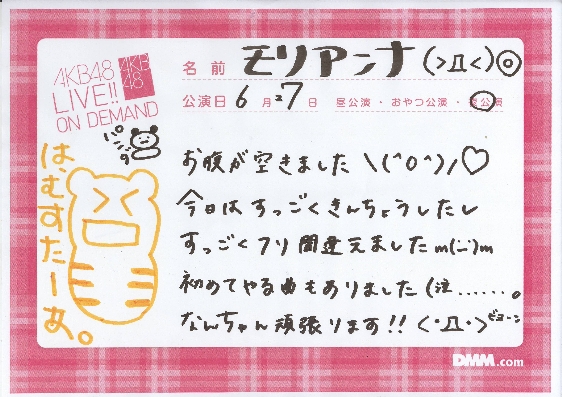 AKB48
LIVE!!
ON DEMAND
AKB
48
名前 モリアンナ(>д<)◎
公演日 6月27日 昼公演・おやつ公演・夜公演
パンダの
は、むすたーあ。
お腹が空きました\(^o^)/♡
今日はすっごくきんちょうしたし
すっごくフリ間違えましたm(_ _)m
初めてやる曲もありました(注......。
なんちゃん頑張ります!!<・д・>ビョーン
DMM.com